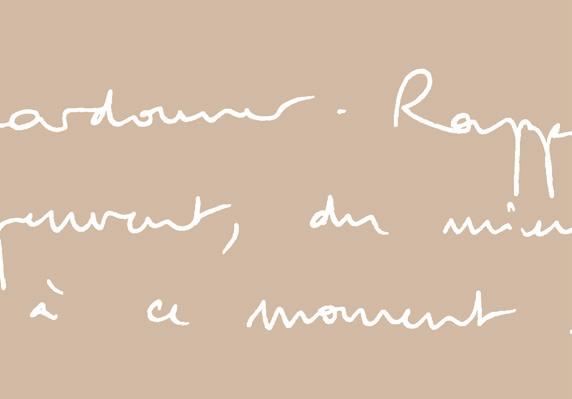 ardonner. Rappe
peuvent, du mieu
à ce moment